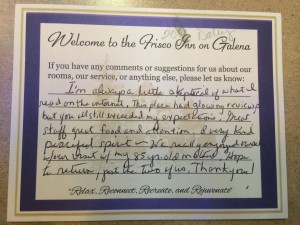 Welcome to the Frisco Inn on Galena
If you have any comments or suggestions for us about our
rooms, our service, or anything else, please let us know:
I'm always a little skeptical of what I
read on the internet. This place had glowing reviews
but you all still exceeded my expectations. Great
staff, great food and attention. A very kind
peaceful spirit - We really enjoyed
our visit w/ my 85 yr. old mother. Hope
to return, just the two of us. Thank you!
"Relax, Reconnect, Recreate, and Rejuvenate"